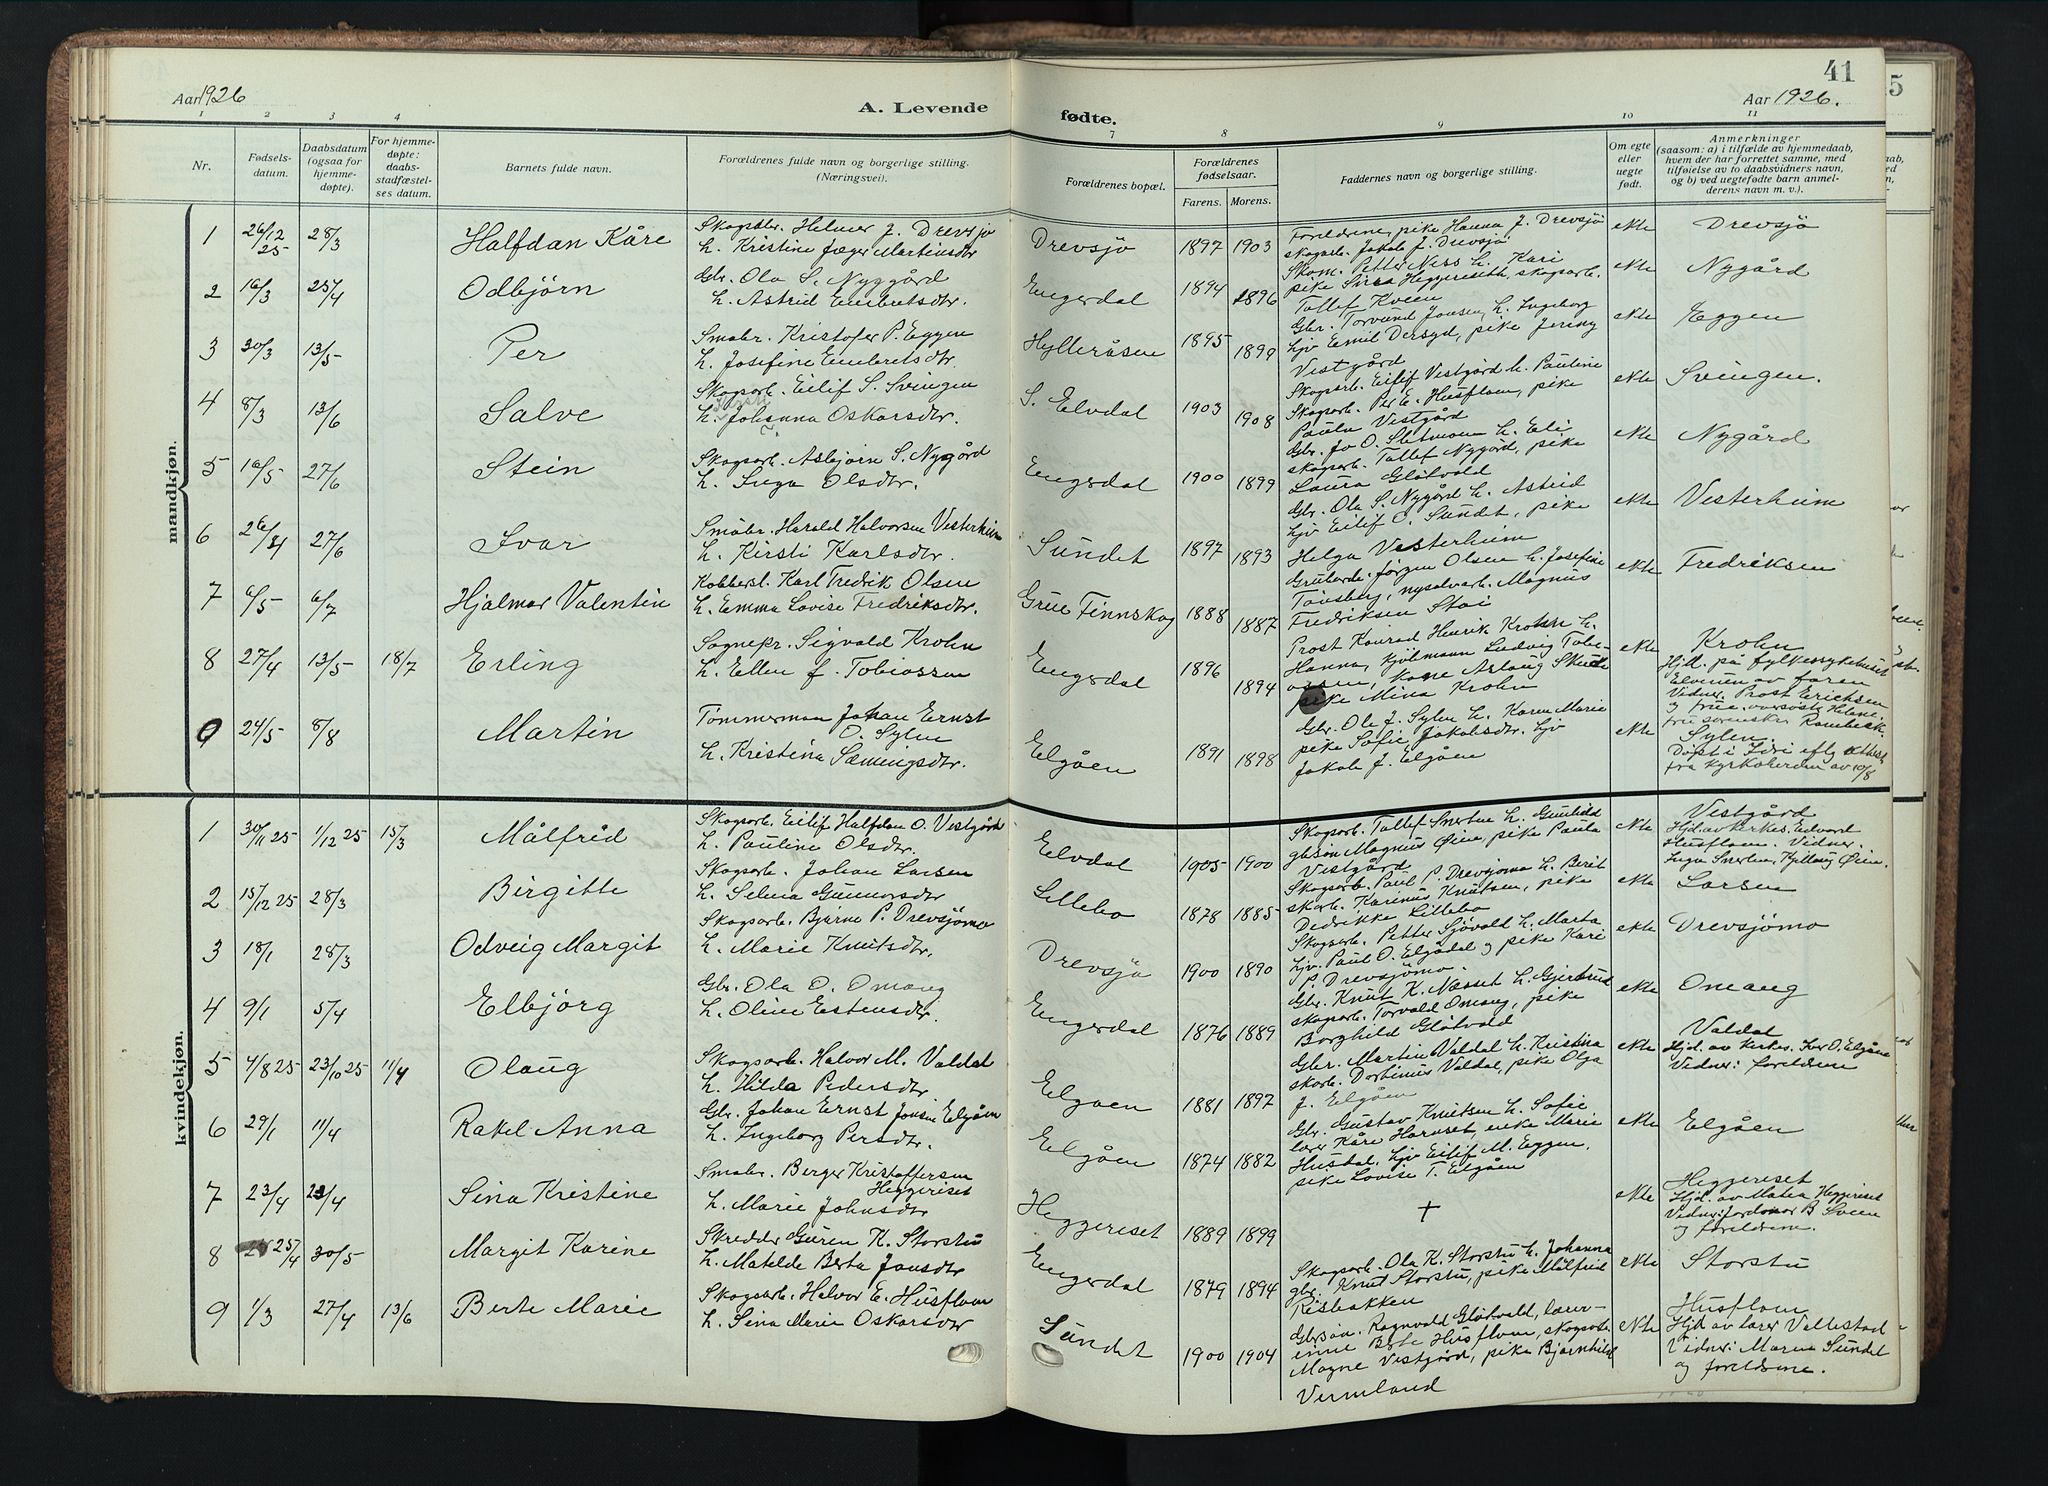 41
5
Aar 1926
A. Levende
fødte.
Aar 1926.
1 2 3 4 7 8 9 10 11
Nr.
Fødsels-
datum.
Daabsdatum
(ogsaa for
hjemme-
døpte).
For hjemme-
døpte:
daabs-
stadfæstel-
ses datum.
Barnets fulde navn.
Forældrenes fulde navn og borgerlige stilling.
(Næringsvei).
Forældrenes bopæl.
Forældrenes
fødselsaar.
Farens. Morens.
Faddernes navn og borgerlige stilling.
Om egte
eller
uegte
født.
Anmerkninger
(saasom: a) i tilfælde av hjemmedaab,
hvem der har forrettet samme, med
tilføielse av to daabsvidners navn,
og b) ved uegtefødte barn anmel-
derens navn m. v.).
mandkjøn.
1 26/12 25 28/3 Halfdan Kåre
Skogsbr. Helmer J. Drevsjø
h. Kristine Jæger Martinsdtr
Drevsjö 1897 1903
Foreldrene, pike Hanna J. Drevsjö
skogarb. Jakob J. Drevsjö
ekte Drevsjö
2 16/3 25/4 Odbjörn
Gbr. Ola S. Nyggård
h. Astrid Embretsdtr.
Engerdal 1894 1896
Skom. Petter Ness h. Kari
pike Sina Heggeriseth, skogsarb.
Tallef Kveen
ekte Nygård
3 30/3 13/5 Per
Småbr. Kristofer P. Eggen
h. Josefine Embretsdtr.
Hylleråsen 1895 1899
Gbr. Torvund Jonsen, h. Ingeborg
ljv Emil Dersyd, pike Jenny
Vestgård
ekte Eggen
4 8/3 13/6 Salve
Skogsarb. Eilif S. Svingen
h. Johanna Oskarsdtr.
S. Elvdal 1903 1908
Skogsarb. Eilif Vestgård h. Pauline
Skogsarb. Per E. Husfloen, pike
Paula Vestgård
ekte Svingen.
5 16/5 27/6 Stein
Skogsarb. Asbjørn S. Nygård
h. Inga Olsdtr.
Engerdal 1900 1899
Gbr. Jo O. Sletmoen h. Eli
skogsarb. Tallef Nygård, pike
Laura Glötvold
ekte Nygård
6 27/6 Ivar
Småbr. Harald Halvorsen Vesterheim
h. Kirsti Karlsdtr.
Sundet 1897 1893
Gbr. Ola S. Nygård h. Astrid
ljv Eilif O. Sundet, pike
Helga Vesterheim
ekte Vesterheim
7 6/5 6/7 Hjalmar Valentin
Kobbersl. Karl Fredrik Olsen
h. Emma Lovise Fredriksdtr.
Grue Finnskog 1888 1887
Grubearb. Jørgen Olsen h. Josefine
Tönsberg, nysølvarb. Magnus
Fredriksen Stai
ekte Fredriksen
8 27/4 13/5 18/7 Erling
Sognepr. Sigvald Krohn
h. Ellen f. Tobiassen
Engerdal 1896 1894
Prost Konrad Henrik Krohn h.
Hanna, kjöbmann Ludvig Tobi-
assen, kone Aslaug
pike Mina Krohn
ekte Krohn
Hjd. på fylkessykehuset
Elverum av faren
Vidner: Prost Erichsen
og frue, oversöster Helene
9 24/5 8/8 Martin
Tömmerman Johan Ernst
O. Sylen
h. Kristina Sæmingsdtr.
Elgåen 1891 1898
Gbr. Ole J. Sylen h. Karen Marie
pike Sofie, Jakobsdtr. ljv
Jakob J. Elgåen
ekte Sylen.
Döpt i Idri eflg attest
fra kyrkoherden av 10/8
kvindekjøn.
1 30/11 25 1/12 25 15/3 Målfrid
Skogsarb. Eilif Halfdan O. Vestgård
h. Pauline Olsdtr.
Elvdal 1905 1900
Skogsarb. Tallef Snerten h. Gunhild
gbsön Magnus Öien, pike Paula
Vestgård
ekte Vestgård
Hjd. av kirkes. Edvard
Husfloen. Vidner:
Inga Snerten, Kjellaug Öien.
2 15/12 25 28/3 Birgitte
Skogsarb. Johan Larsen
h. Selma Gunnarsdtr
Lillebo 1878 1885
Skogsarb. Paul P. Drevsjömo h. Berit
skarb. Karinus Knutsen, pike
Dedrikke Lillebo
ekte Larsen
3 18/1 28/3 Odveig Margit
Skogsarb. Bjarne P. Drevsjömo
h. Marie Knutsdtr.
Drevsjö 1900 1890
Skogsarb. Petter Sjövold h. Marta
ljv. Paul O. Elgådal og pike Kari
P. Drevsjömo.
ekte Drevsjömo
4 9/1 5/4 Elbjörg
Gbr. Ola O. Omang
h. Oline Estensdtr.
Engerdal 1876 1889
Gbr. Knut K. Nesset h. Gjertrud
skogsarb. Torvald Omang, pike
Borghild Glötvold
ekte Omang
5 4/8 25 23/10 25 11/4 Olaug
Skogsarb. Halvor M. Valdal
h. Hilda Pedersdtr
Elgåen 1881 1897
Gbr. Martin Valdal h. Kristina
skarb. Dorbinus Valdal, pike Olga
J. Elgåen
ekte Valdal
Hjd. av kirkes. Iver O. Elgåen
Vidner: foreldrene
6 29/1 11/4 Rakel Anna
Gbr. Johan Ernst Jonsen Elgåen
h. Ingeborg Persdtr.
Elgåen 1874 1882
Gbr. Gustav Knutsen h. Sofie
lærer Kåre Harnset, enke Marie
Husdal, ljv Eilif M. Eggen,
pike Lovise T. Elgåen
ekte Elgåen
7 23/4 23/4 Sina Kristine
Småbr. Berger Kristoffersen
Heggeriset
h. Marie Johnsdtr
Heggeriset 1889 1899
+
ekte Heggeriset
Hjd. av Matea Heggeriset
Vidner: jordmor B Sveen
og foreldrene.
8 25/4 30/5 Margit Karine
Skredder Guren K. Storstu
h. Matelde Berta Jonsdtr
Engerdal 1879 1894
Skogsarb. Ola K. Storstu h. Johanna
gbr. Knut Storstu, pike Målfrid
Risbakken
ekte Storstu
9 1/3 27/4 13/6 Berte Marie
Skogsarb. Halvor E. Husfloen
h. Sina Marie Oskarsdtr
Sundet 1900 1904
Gbrsön. Ragnvald Glötvold, lærer-
inne Berte Husfloen, skogsarb
Magne Vestgård, pike Bjarnhild
Vermland
ekte Husfloen
Hjd av lærer Vallestad
Vidner: Maren Sundet
og foreldrene.